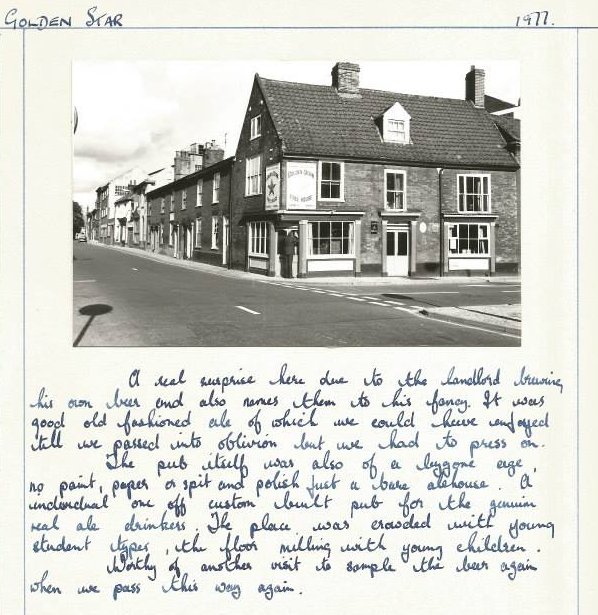 GOLDEN STAR 1977.
GOLDEN STAR
FREE HOUSE
A real surprise here due to the landlord brewing
his own beer and also names them to his fancy. It was
good old fashioned ale of which we could have enjoyed
till we passed into oblivion but we had to press on.
The pub itself was also of a bygone age,
no paint, paper or spit and polish just a bare alehouse. A
individual one off custom built pub for the genuin
real ale drinkers. The place was crowded with young
student types, the floor milling with young children.
Worthy of another visit to sample the beer again
when we pass this way again.